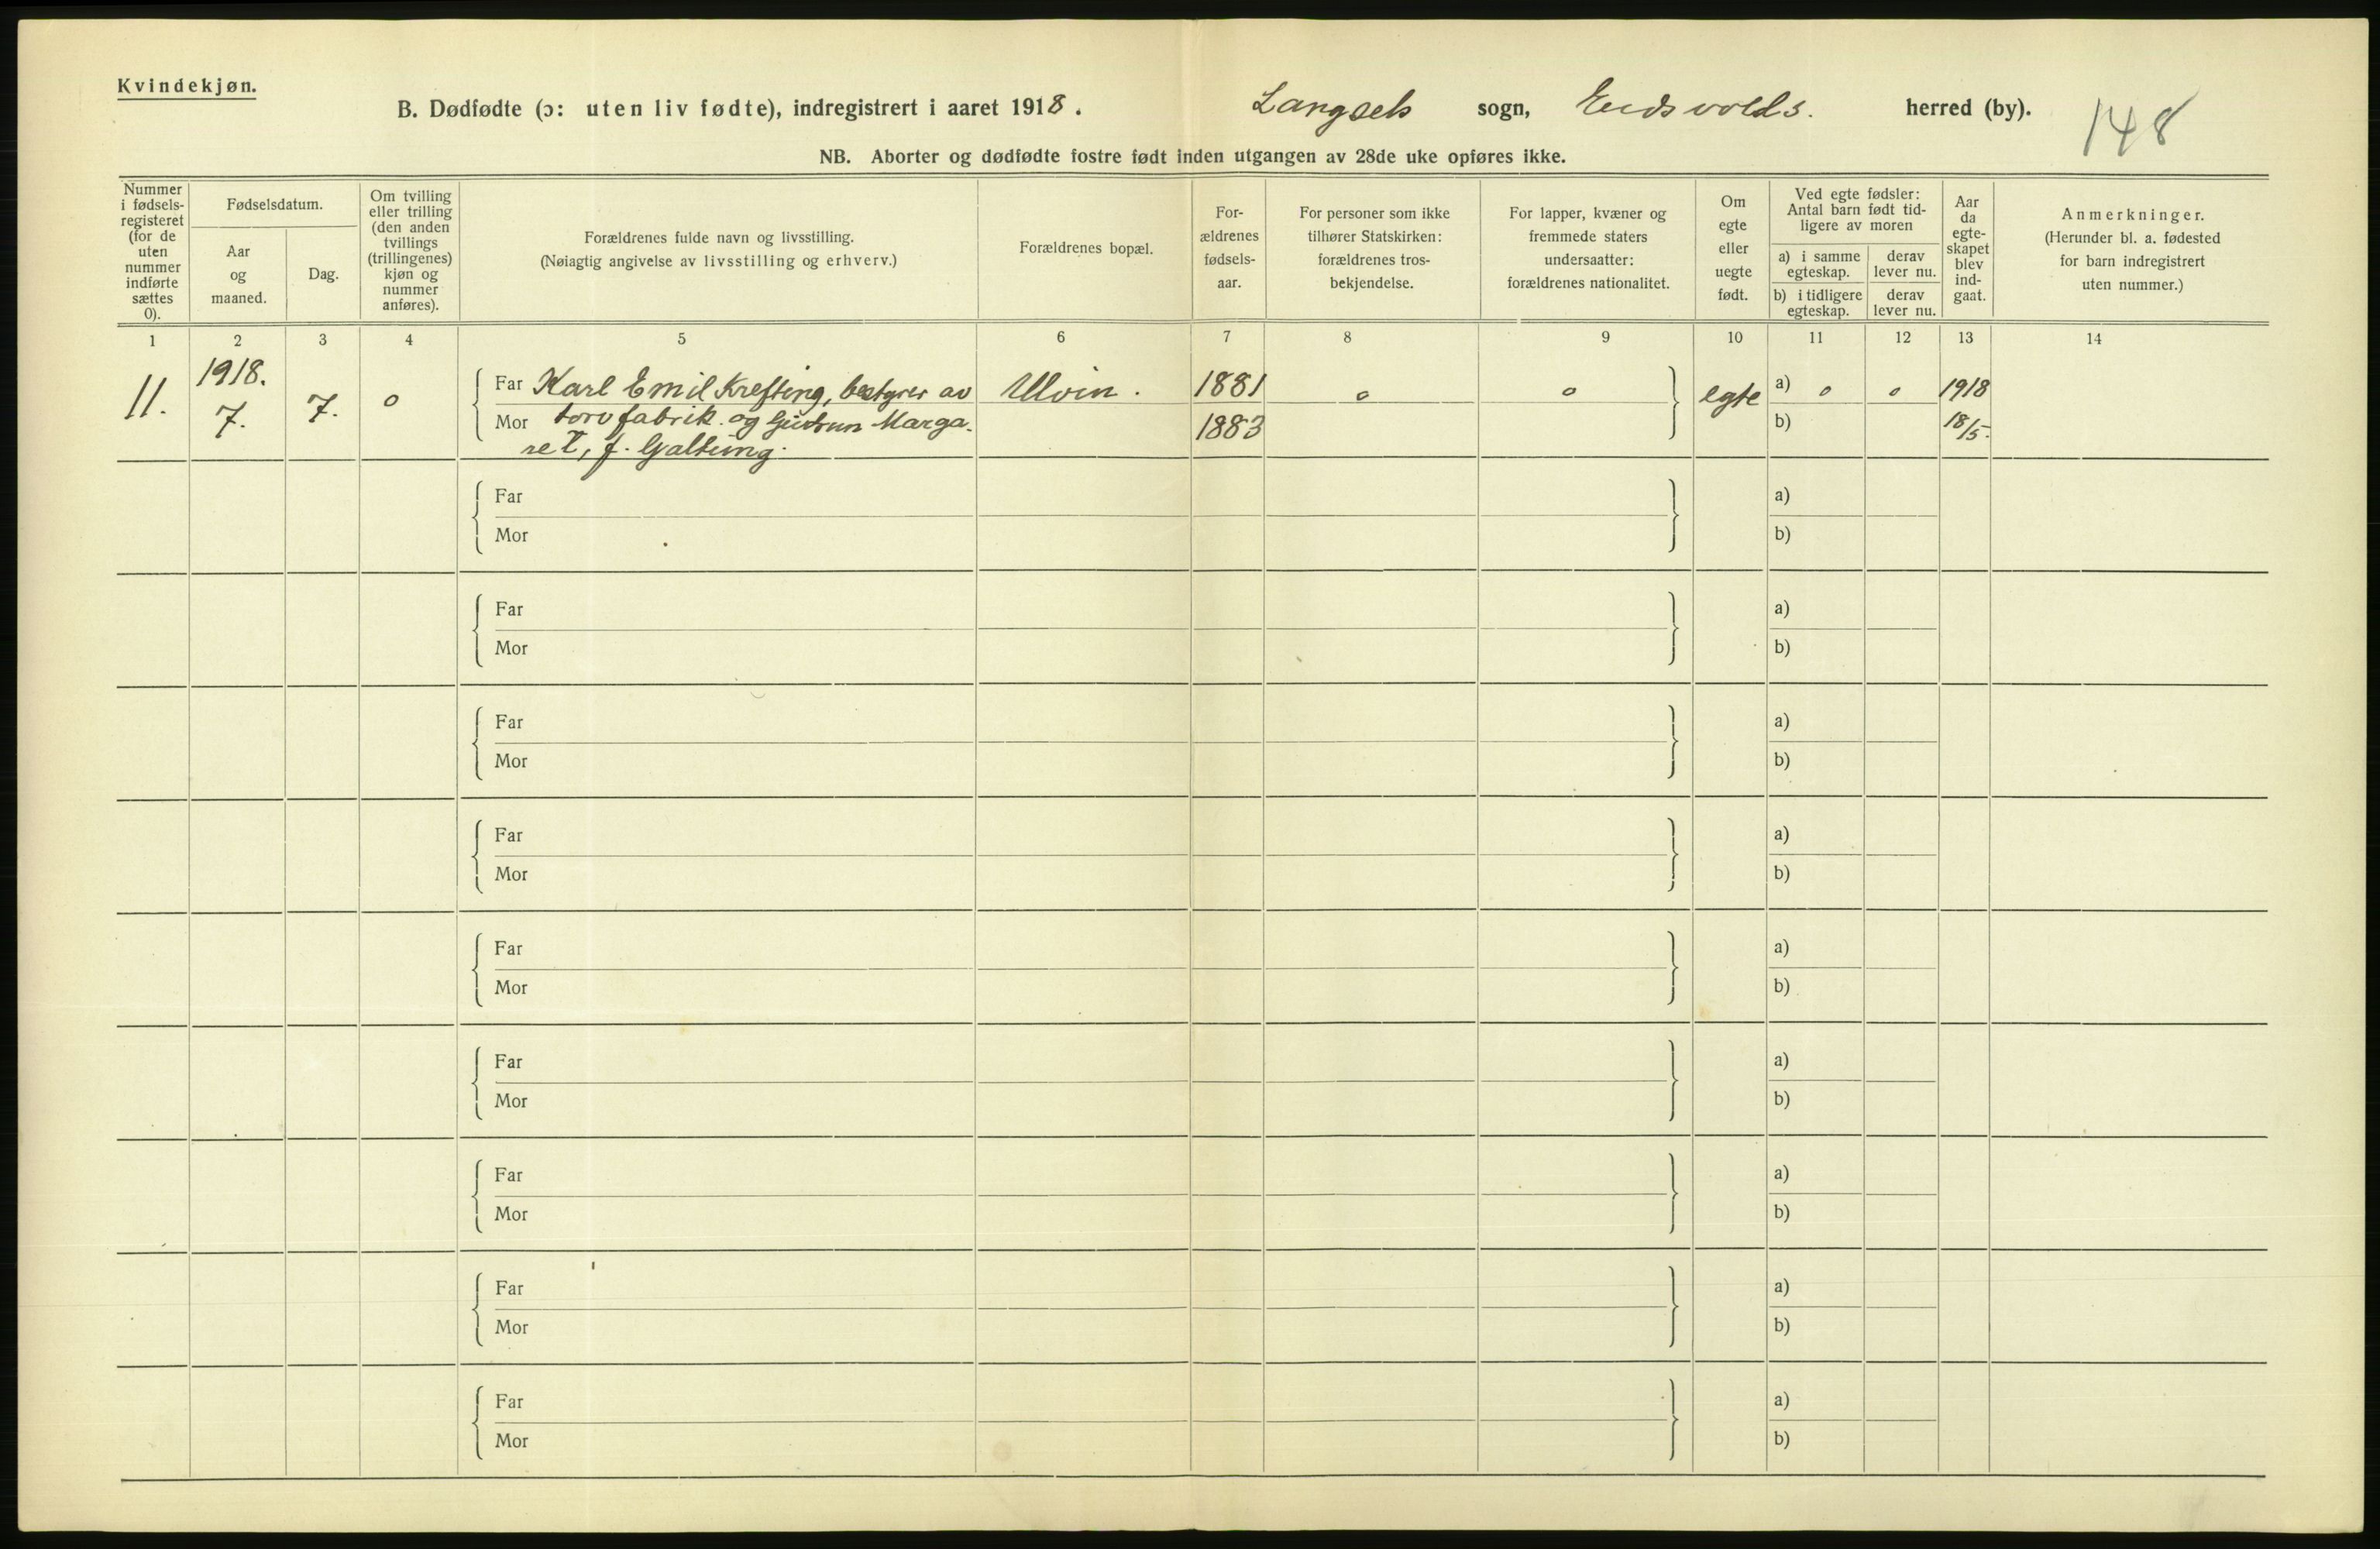 Kvindekjøn.
B. Dødfødte (ɔ: uten liv fødte), indregistrert i aaret 1918. Langsets sogn, Eidsvolds. herred (by). 148
NB. Aborter og dødfødte fostre født inden utgangen av 28de uke opføres ikke.
Nummer i fødsels-registeret (for de uten nummer indførte sættes 0).
Fødselsdatum.
Aar og maaned.
Dag.
Om tvilling eller trilling (den anden tvillings (trillingenes) kjøn og nummer anføres).
Forældrenes fulde navn og livsstilling.
(Nøiagtig angivelse av livsstilling og erhverv.)
Forældrenes bopæl.
For-ældrenes fødsels-aar.
For personer som ikke tilhører Statskirken: forældrenes tros-bekjendelse.
For lapper, kvæner og fremmede staters undersaatter: forældrenes nationalitet.
Om egte eller uegte født.
Ved egte fødsler: Antal barn født tid-ligere av moren
a) i samme egteskap. derav lever nu.
b) i tidligere egteskap. derav lever nu.
Aar da egte-skapet blev ind-gaat.
Anmerkninger.
(Herunder bl. a. fødested for barn indregistrert uten nummer.)
1 2 3 4 5 6 7 8 9 10 11 12 13 14
11. 1918. 7. 7. 0
Far Karl Emil Krefting, bestyrer av Ulvin. 1881 0 0 egte a) 0 0 1918
Mor torvfabrik. og Gudrun Marga- 1883 b) 18/5.
ret, f. Galtung.
Far a)
Mor b)
Far a)
Mor b)
Far a)
Mor b)
Far a)
Mor b)
Far a)
Mor b)
Far a)
Mor b)
Far a)
Mor b)
Far a)
Mor b)
Far a)
Mor b)